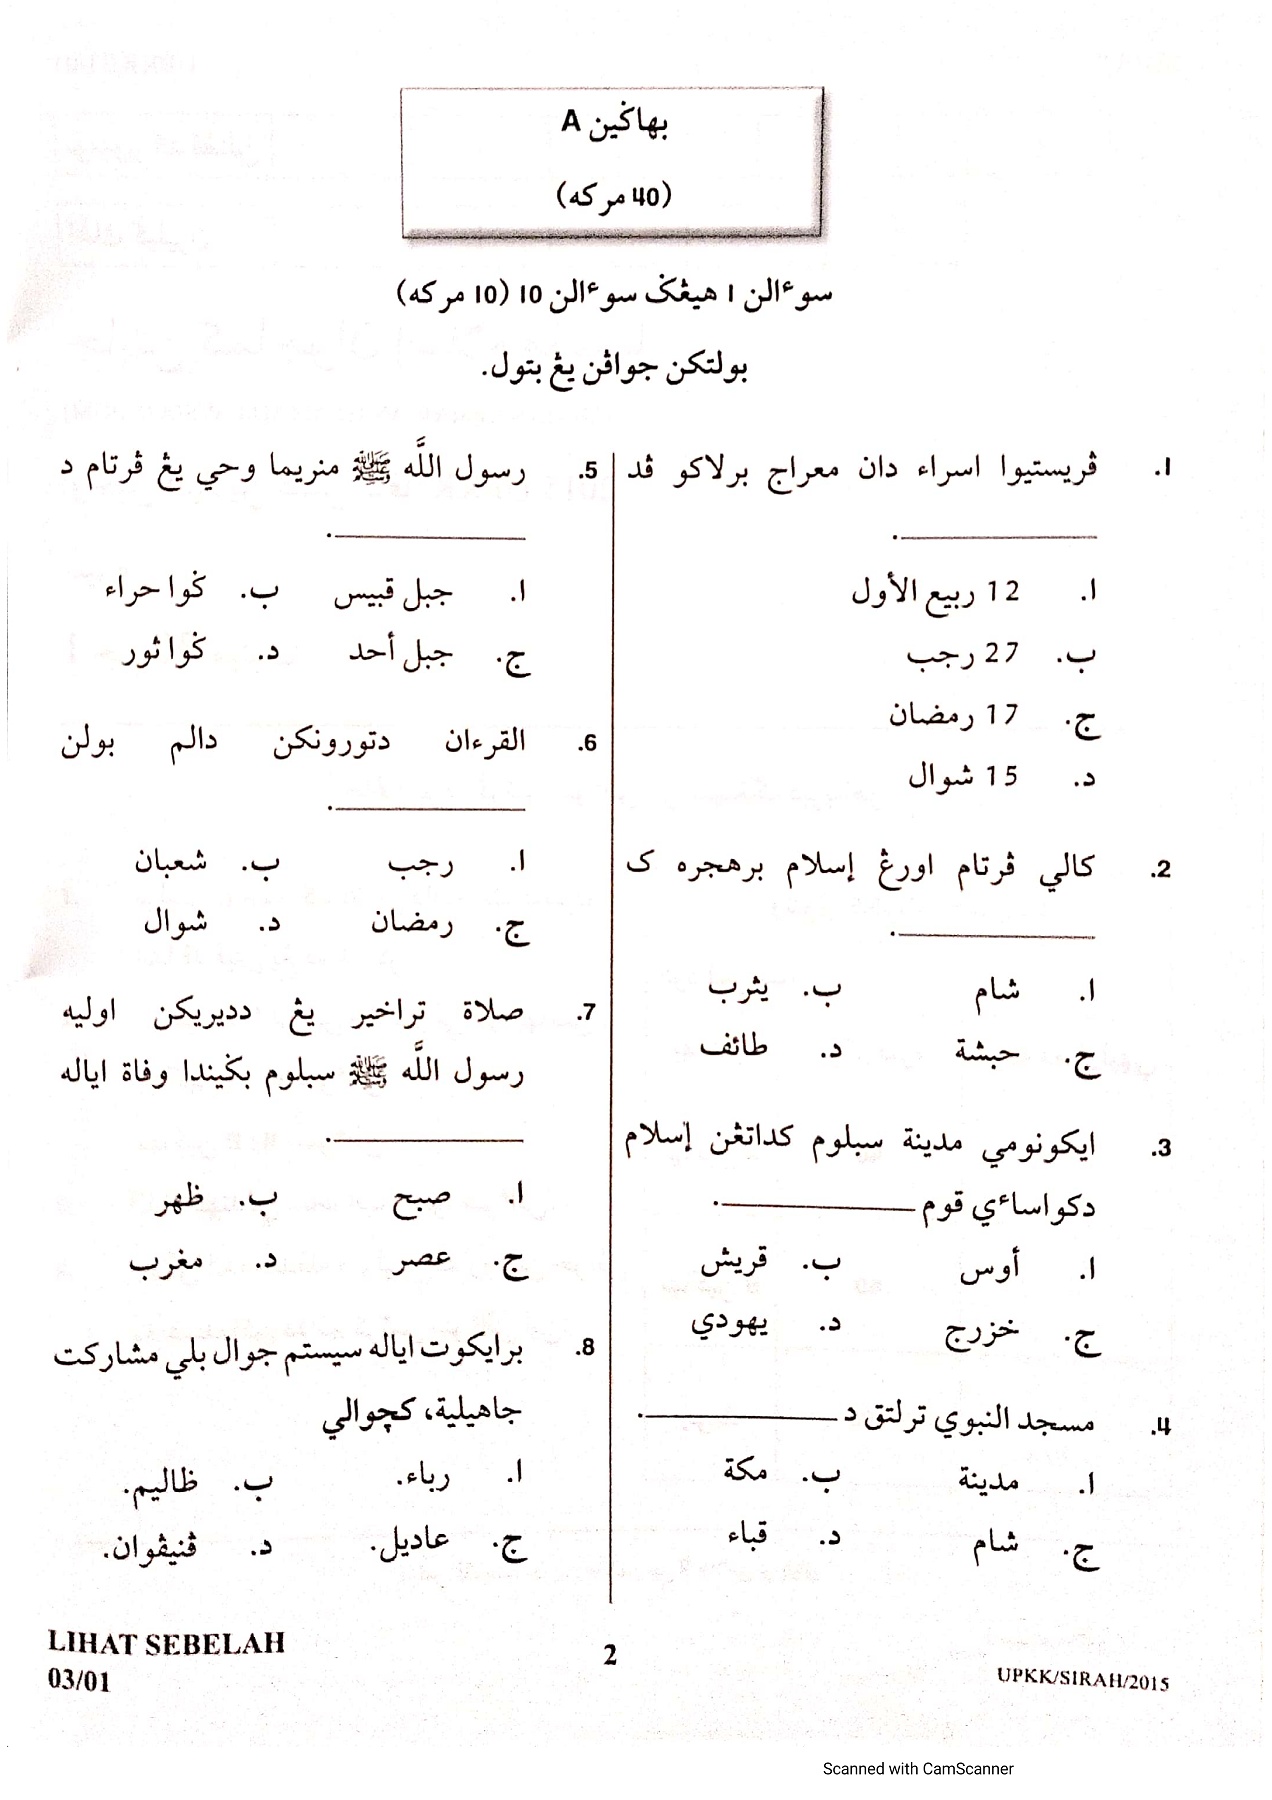 بهاݢين A
(40 مركه)
سوءالن 1 هيڠݢ سوءالن 10 (10 مركه)
بولتكن جواڤن يڠ بتول.
1. ڤريستيوا اسراء دان معراج برلاكو ڤد
____________.
ا. 12 ربيع الأول
ب. 27 رجب
ج. 17 رمضان
د. 15 شوال
2. كالي ڤرتام اورڠ إسلام برهجره ك
____________.
ا. شام ب. يثرب
ج. حبشة د. طائف
3. ايكونومي مدينة سبلوم كداتڠن إسلام
دكواساءي قوم ____________.
ا. أوس ب. قريش
ج. خزرج د. يهودي
4. مسجد النبوي ترلتق د ____________.
ا. مدينة ب. مكة
ج. شام د. قباء
5. رسول اللَّه ﷺ منريما وحي يڠ ڤرتام د
____________.
ا. جبل قبيس ب. ݢوا حراء
ج. جبل أحد د. ݢوا ثور
6. القرءان دتورونكن دالم بولن
____________.
ا. رجب ب. شعبان
ج. رمضان د. شوال
7. صلاة تراخير يڠ دديريكن اوليه
رسول اللَّه ﷺ سبلوم بݢيندا وفاة اياله
____________.
ا. صبح ب. ظهر
ج. عصر د. مغرب
8. برايكوت اياله سيستم جوال بلي مشاركت
جاهيلية، كچوالي
ا. رباء. ب. ظاليم.
ج. عاديل. د. ڤنيڤوان.
LIHAT SEBELAH
03/01
2
UPKK/SIRAH/2015
Scanned with CamScanner